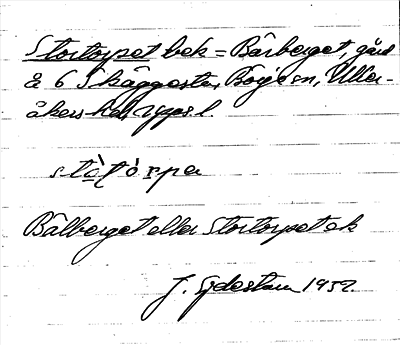 Stortorpet bek = Bårberget, gård
å 6 Skäggesta, Börje sn, Uller-
åkers hd, Uppsl.
stòṭórpa
Bålberget eller Stortorpet ek
J. Sjdestam 1952.